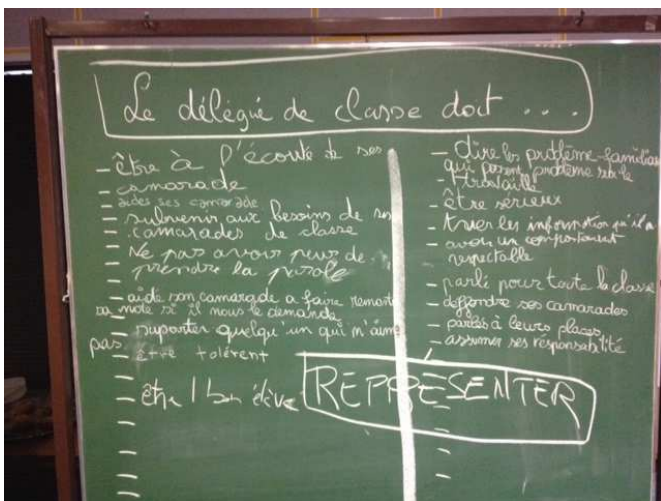 Le délégué de classe doit ...
- être à l'écoute de ses
- camarade
- aides ses camarade
- subvenir aux besoins de ses
- camarades de classe
- Ne pas avoir peur de
- prendre la parole
- aidé son camarade a faire remonté
sa note si il nous le demande
- suporter quelqu'un qui m'aime
pas
- être tolérent
- être 1 bon élève
- dire les problème familiale
qui posent problème sur le
- travaille
- être sérieux
- les information qu'il a
- avoir un comportement
respectable
- parlé pour toute la classe
- deffendre ses camarades
- parlés à leurs places
- assumer ses résponsabilité
REPRESENTER